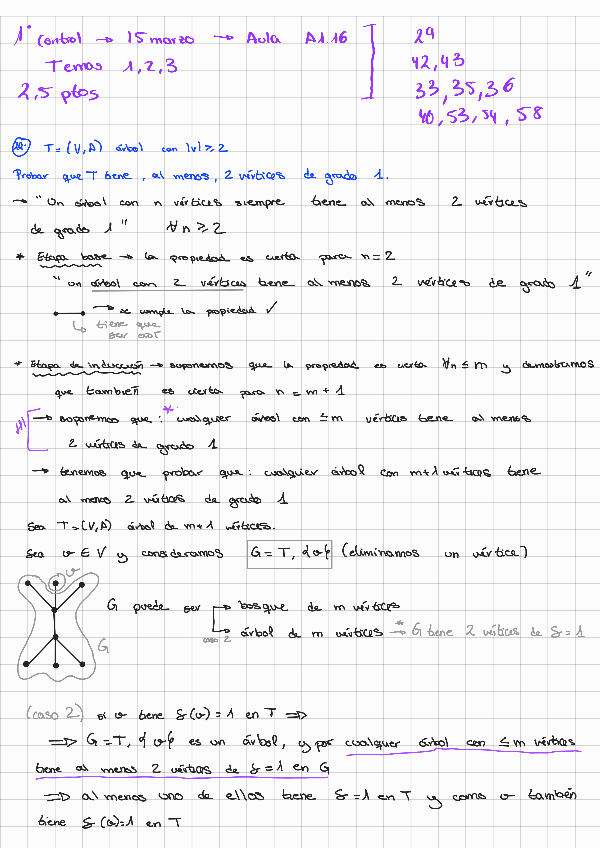 1º Control → 15 marzo → Aula A1.16
Temas 1,2,3
2,5 ptos
29
42,43
33,35,36
40,53,54,58
29. T=(V,A) árbol con |V|≥2
Probar que T tiene, al menos, 2 vértices de grado 1.
→ "Un árbol con n vértices siempre tiene al menos 2 vértices
de grado 1" ∀n≥2
* Etapa base → la propiedad es cierta para n=2
"un árbol con 2 vértices tiene al menos 2 vértices de grado 1"
→ se cumple la propiedad ✓
↳ tiene que
ser así
* Etapa de inducción → suponemos que la propiedad es cierta ∀n≤m y demostramos
que también es cierta para n=m+1
HI → suponemos que: * cualquier árbol con ≤m vértices tiene al menos
2 vértices de grado 1
→ tenemos que probar que: cualquier árbol con m+1 vértices tiene
al menos 2 vértices de grado 1
Sea T=(V,A) árbol de m+1 vértices.
Sea v∈V y consideramos G=T\{v} (eliminamos un vértice)
v
G
G puede ser → bosque de m vértices
caso 2 → árbol de m vértices →* G tiene 2 vértices de δ=1
(caso 2) si v tiene δ(v)=1 en T ⟹
⟹ G=T\{v} es un árbol, y por cualquier árbol con ≤m vértices
tiene al menos 2 vértices de δ=1 en G
⟹ al menos uno de ellos tiene δ=1 en T y como v también
tiene δ(v)=1 en T